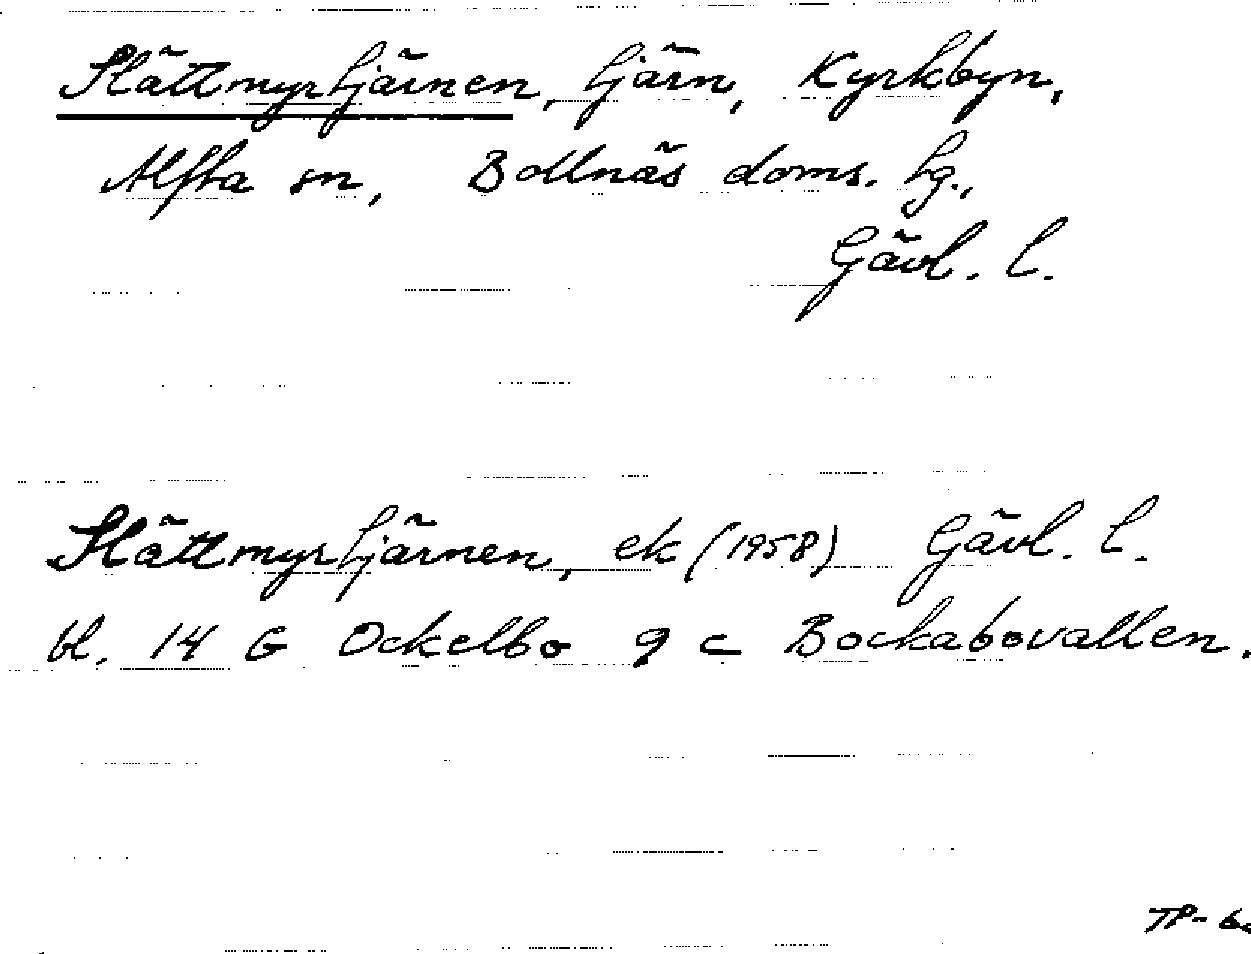 Slättmyrtjärnen, tjärn, Kyrkbyn,
Alfta sn, Bollnäs doms. tg.,
Gävl. l.
Slättmyrtjärnen, ek (1958) Gävl. l.
bl. 14 G Ockelbo 9 c Bockabovallen.